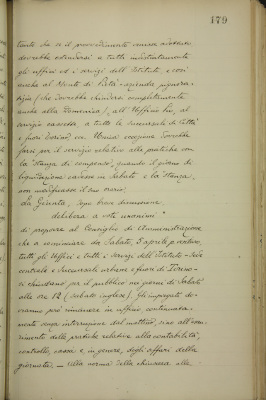 179
tante che se il provvedimento venisse adottato
dovrebbe estendersi a tutti indistintamente
gli uffici ed i servizi dell'Istituto, e così
anche al Monte di Pietà - azienda pignora-
tizia (che dovrebbe chiudere completamente
anche alla Domenica), all'Ufficio
servizio cassette, a tutte le Succursali di Città
e fuori Torino ecc. Unica eccezione dovrebbe
farsi per il servizio relativo alle pratiche con
la Stanza di compenso, quando il giorno di
liquidazione cadesse in Sabato e la Stanza,
non modificasse il suo orario.
La Giunta, dopo breve discussione,
delibera a voti unanimi
di proporre al Consiglio di Amministrazione
che a cominciare da Sabato, 5 aprile p. venturo,
tutti gli Uffici e tutti i Servizi dell'Istituto - Sede
centrale e Succursali urbane e fuori di Torino -
si chiudano per il pubblico nei giorni di Sabato
alle ore 12 (sabato inglese). Gli impiegati do-
vranno poi rimanere in ufficio continuata-
mente senza interruzione dal mattino, sino all'esau-
rimento delle pratiche relative alla contabilità,
controllo, cassa e, in genere, degli affari della
giornata - nella norma della chiusura alle